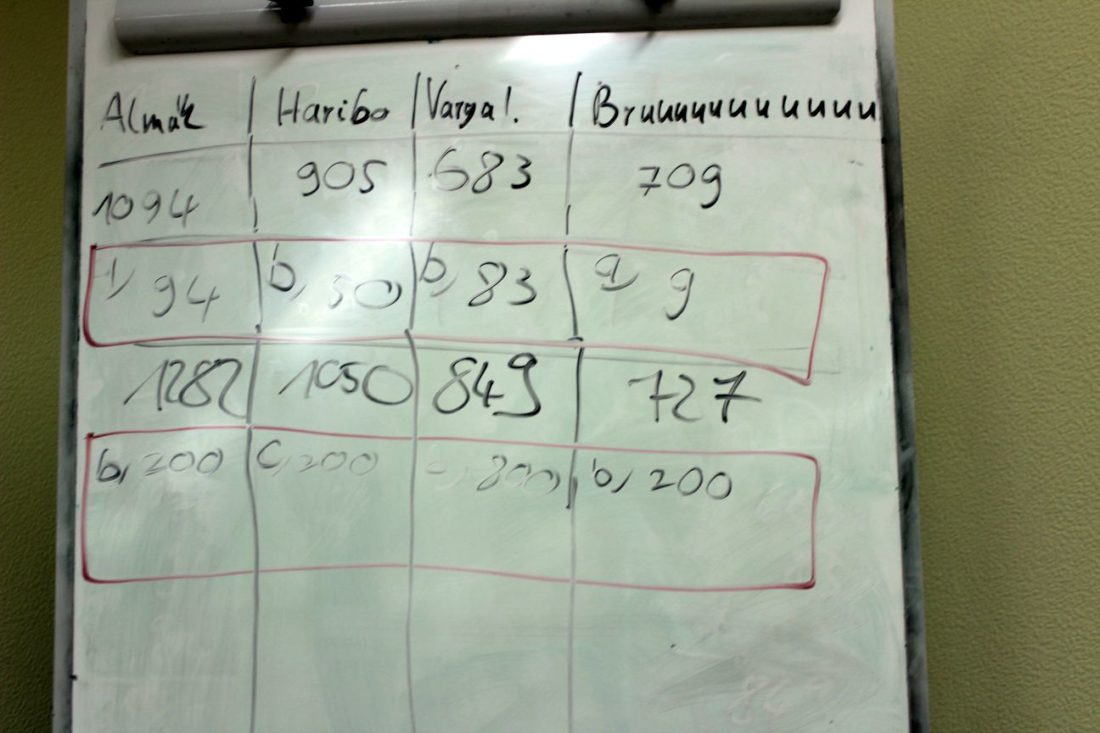 Almák Haribo Varga! Bruuuuuuuuuuu
1094 905 683 709
94 b, 50 b, 83 a, 9
1282 1050 849 727
b, 200 c, 200 800 b, 200